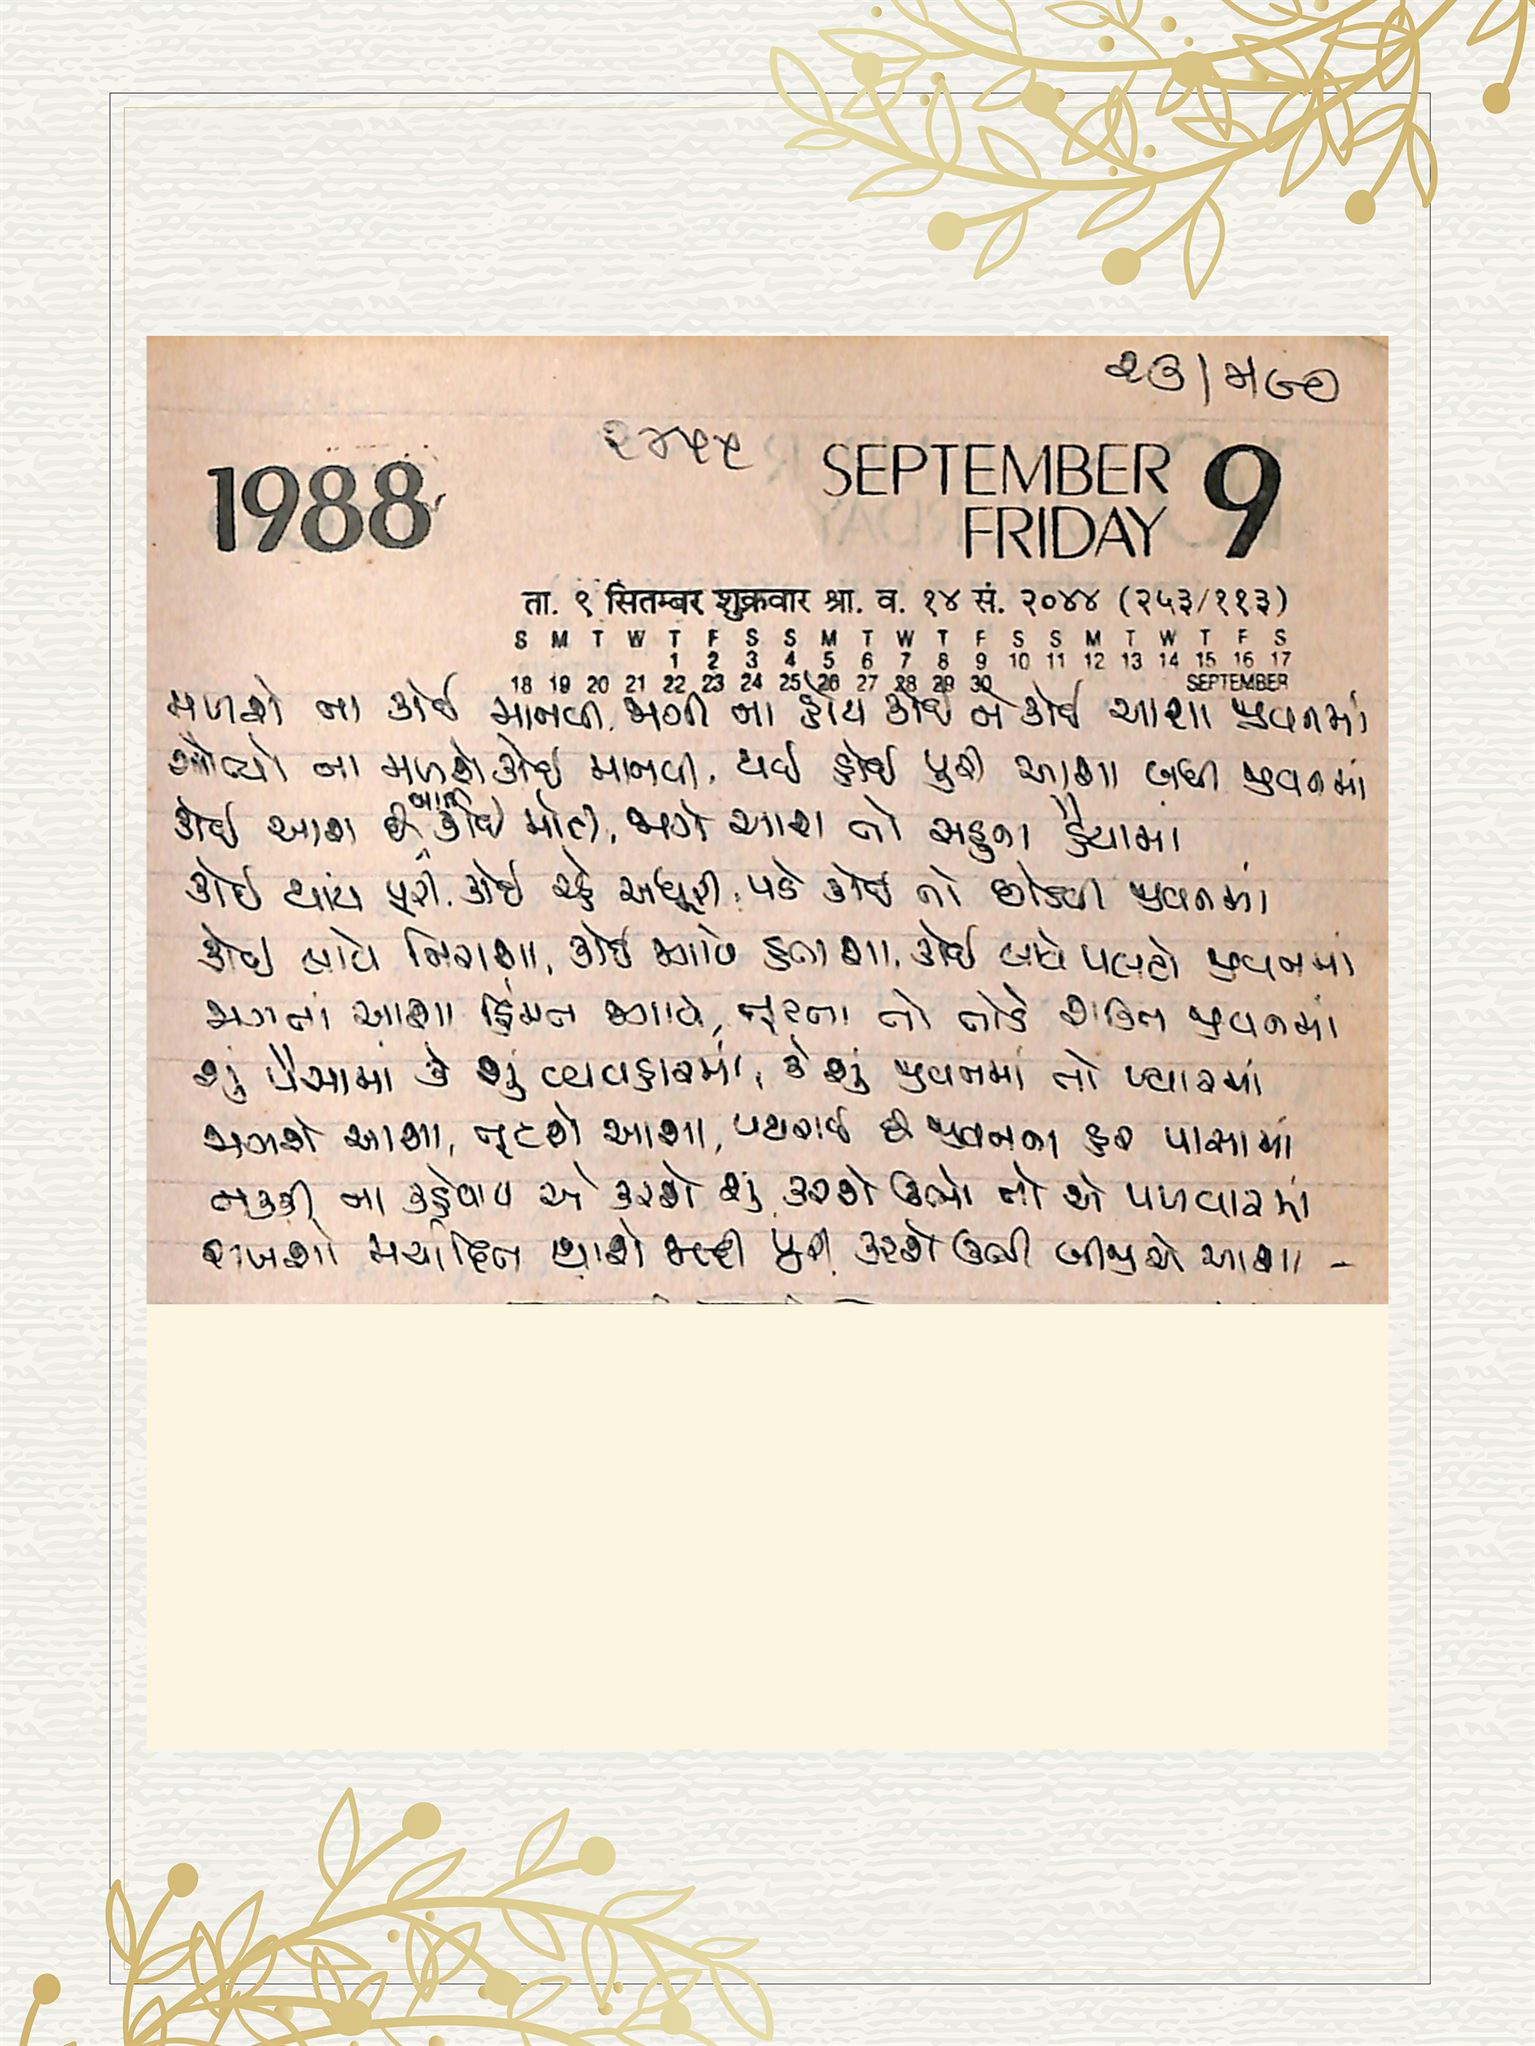 ૨૩/મ૯૦
૨૪૫૫
1988 SEPTEMBER 9
FRIDAY
ता. ९ सितम्बर शुक्रवार श्रा. व. १४ सं. २०४४ (२५३/११३)
S M T W T F S S M T W T F S S M T W T F S
1 2 3 4 5 6 7 8 9 10 11 12 13 14 15 16 17
18 19 20 21 22 23 24 25 26 27 28 29 30 SEPTEMBER
મળશે ના કોઈ માનવી, જાગી ના હોય કોઈ ને કોઈ આશા જીવનમાં
ના મળશે કોઈ માનવી, થઈ હોઈ પૂરી આશા બધી જીવનમાં
કોઈ આશા છે નાની કોઈ મોટી, જાગે આશા તો સહુના હૈયામાં
કોઈ થાય પૂરી, કોઈ રહે અધૂરી, પડે કોઈ તો છોડવી જીવનમાં
કોઈ લાવે નિરાશા, કોઈ આપે હતાશા, કોઈ લાવે પલટો જીવનમાં
જાગતાં આશા હિંમત આવે, તૂટતા તો તોડે શક્તિ જીવનમાં
શું પૈસામાં કે શું વ્યવહારમાં, કે શું જીવનમાં તો પ્યારમાં
જાગશે આશા, તૂટશે આશા, પથરાઈ છે જીવનના હર પાસામાં
નક્કી ના કહેવાય એ કરશે શું, કરશે ઊભો તો એ પળવારમાં
રાખશો મર્યાદિત થાશે જલ્દી પૂરી, કરશે ઊભી બીજી એ આશા -